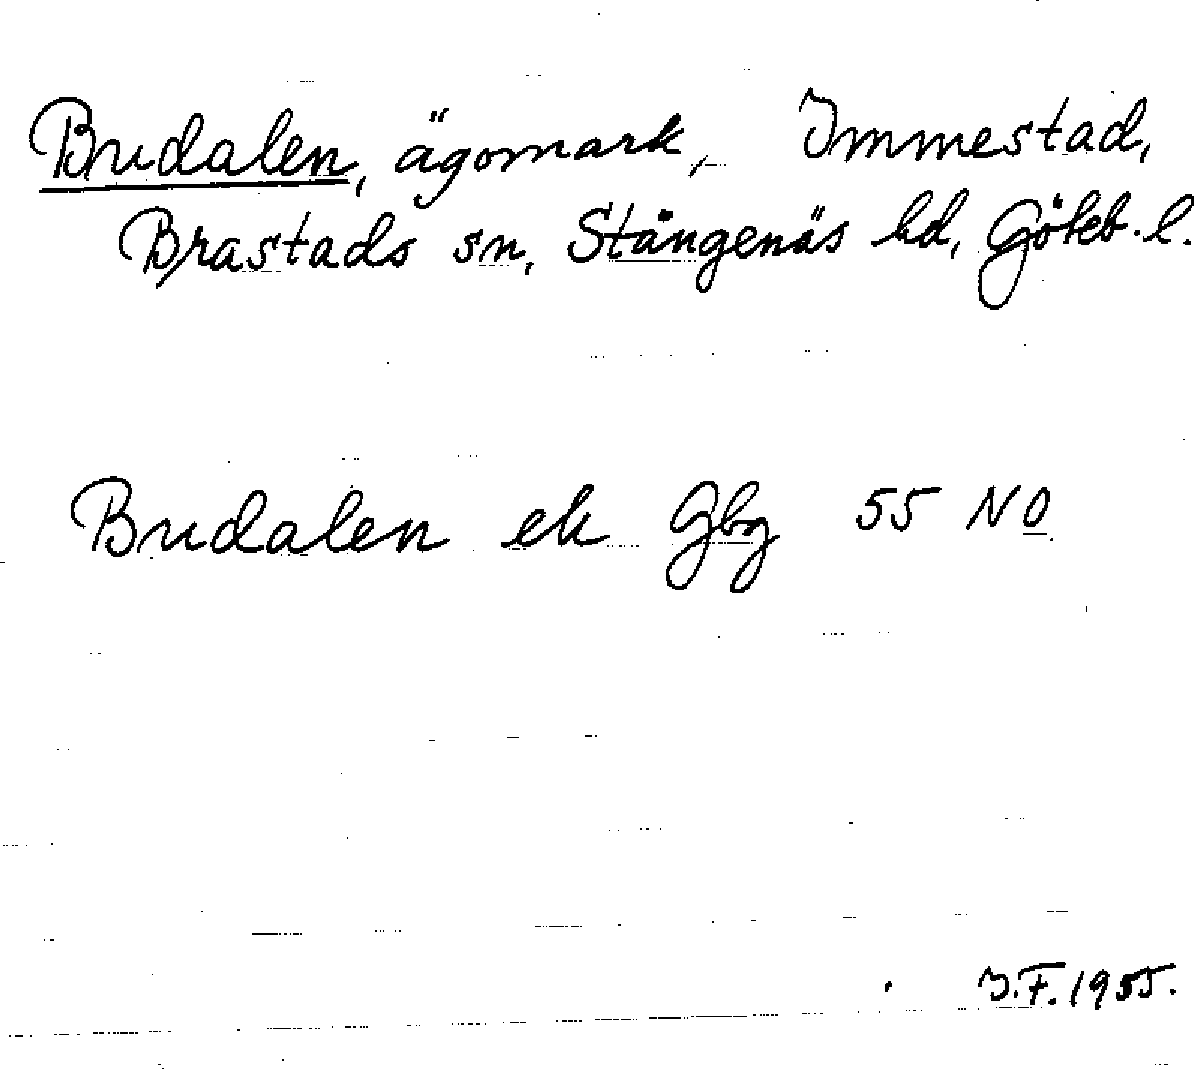 Budalen, ägomark, Immestad,
Brastads sn, Stångenäs hd, Göteb. l.
Budalen ek Gbg 55 NO
I.F. 1955.